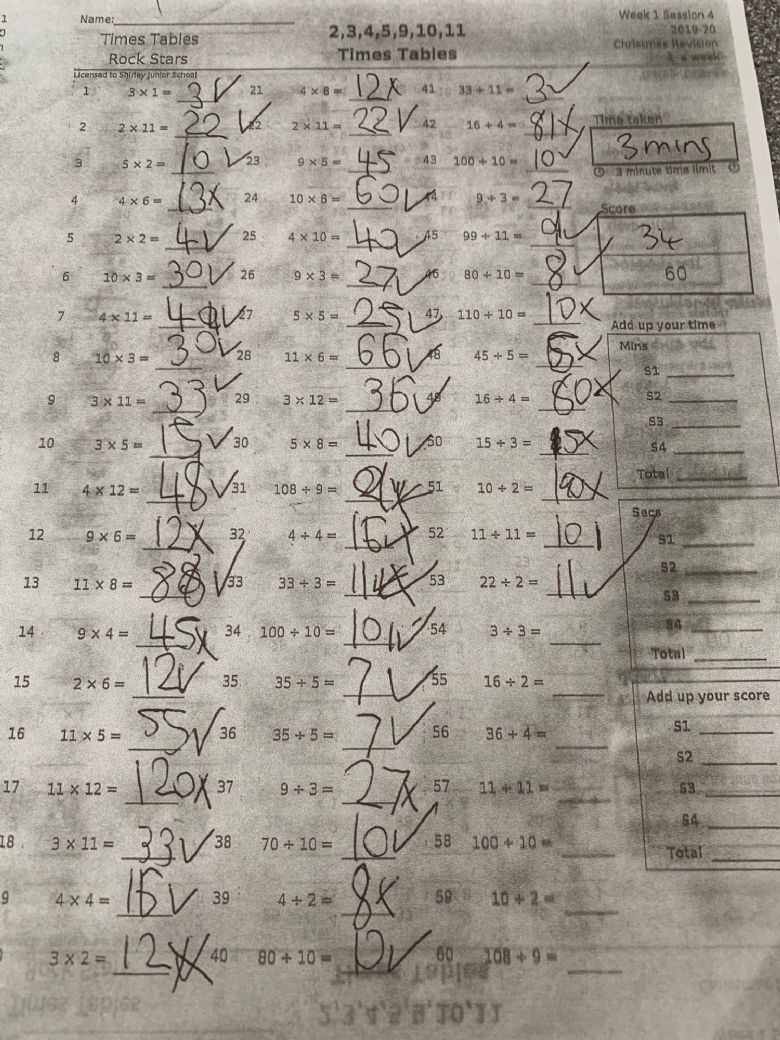 Name:
Times Tables
Rock Stars
Licensed to Shirley Junior School
2,3,4,5,9,10,11
Times Tables
Week 1 Session 4
2019-20
Christmas Revision
4 a week
1 3 x 1 = 3 ✓ 21 4 x 8 = 12 x 41 33 ÷ 11 = 3 ✓
2 2 x 11 = 22 ✓ 22 2 x 11 = 22 ✓ 42 16 ÷ 4 = 81 x
3 5 x 2 = 10 ✓ 23 9 x 5 = 45 43 100 ÷ 10 = 10 ✓
4 4 x 6 = 13 x 24 10 x 6 = 60 ✓ 44 9 ÷ 3 = 27
5 2 x 2 = 4 ✓ 25 4 x 10 = 40 ✓ 45 99 ÷ 11 = 9 ✓
6 10 x 3 = 30 ✓ 26 9 x 3 = 27 ✓ 46 80 ÷ 10 = 8 ✓
7 4 x 11 = 44 ✓ 27 5 x 5 = 25 ✓ 47 110 ÷ 10 = 10 x
8 10 x 3 = 30 ✓ 28 11 x 6 = 66 ✓ 48 45 ÷ 5 = x
9 3 x 11 = 33 ✓ 29 3 x 12 = 36 ✓ 49 16 ÷ 4 = 80 x
10 3 x 5 = 15 ✓ 30 5 x 8 = 40 ✓ 50 15 ÷ 3 = 5 x
11 4 x 12 = 48 ✓ 31 108 ÷ 9 = 51 10 ÷ 2 = x
12 9 x 6 = 12 x 32 4 ÷ 4 = 16 x 52 11 ÷ 11 = 10
13 11 x 8 = 88 ✓ 33 33 ÷ 3 = 11 53 22 ÷ 2 = 11 ✓
14 9 x 4 = 45 x 34 100 ÷ 10 = 10 ✓ 54 3 ÷ 3 =
15 2 x 6 = 12 ✓ 35 35 ÷ 5 = 7 ✓ 55 16 ÷ 2 =
16 11 x 5 = 55 ✓ 36 35 ÷ 5 = 7 ✓ 56 36 ÷ 4 =
17 11 x 12 = 120 x 37 9 ÷ 3 = 27 x 57 11 ÷ 11 =
18 3 x 11 = 33 ✓ 38 70 ÷ 10 = 10 ✓ 58 100 ÷ 10 =
9 4 x 4 = 16 ✓ 39 4 ÷ 2 = 8 x 59 10 ÷ 2 =
3 x 2 = 12 x 40 80 ÷ 10 = 10 ✓ 60 108 ÷ 9 =
Time taken
3 mins
3 minute time limit
Score
34
60
Add up your time
Mins
S1
S2
S3
S4
Total
Secs
S1
S2
S3
S4
Total
Add up your score
S1
S2
S3
S4
Total
Times Tables
2,3,4,5,9,10,11
Rock Stars
Times Tables